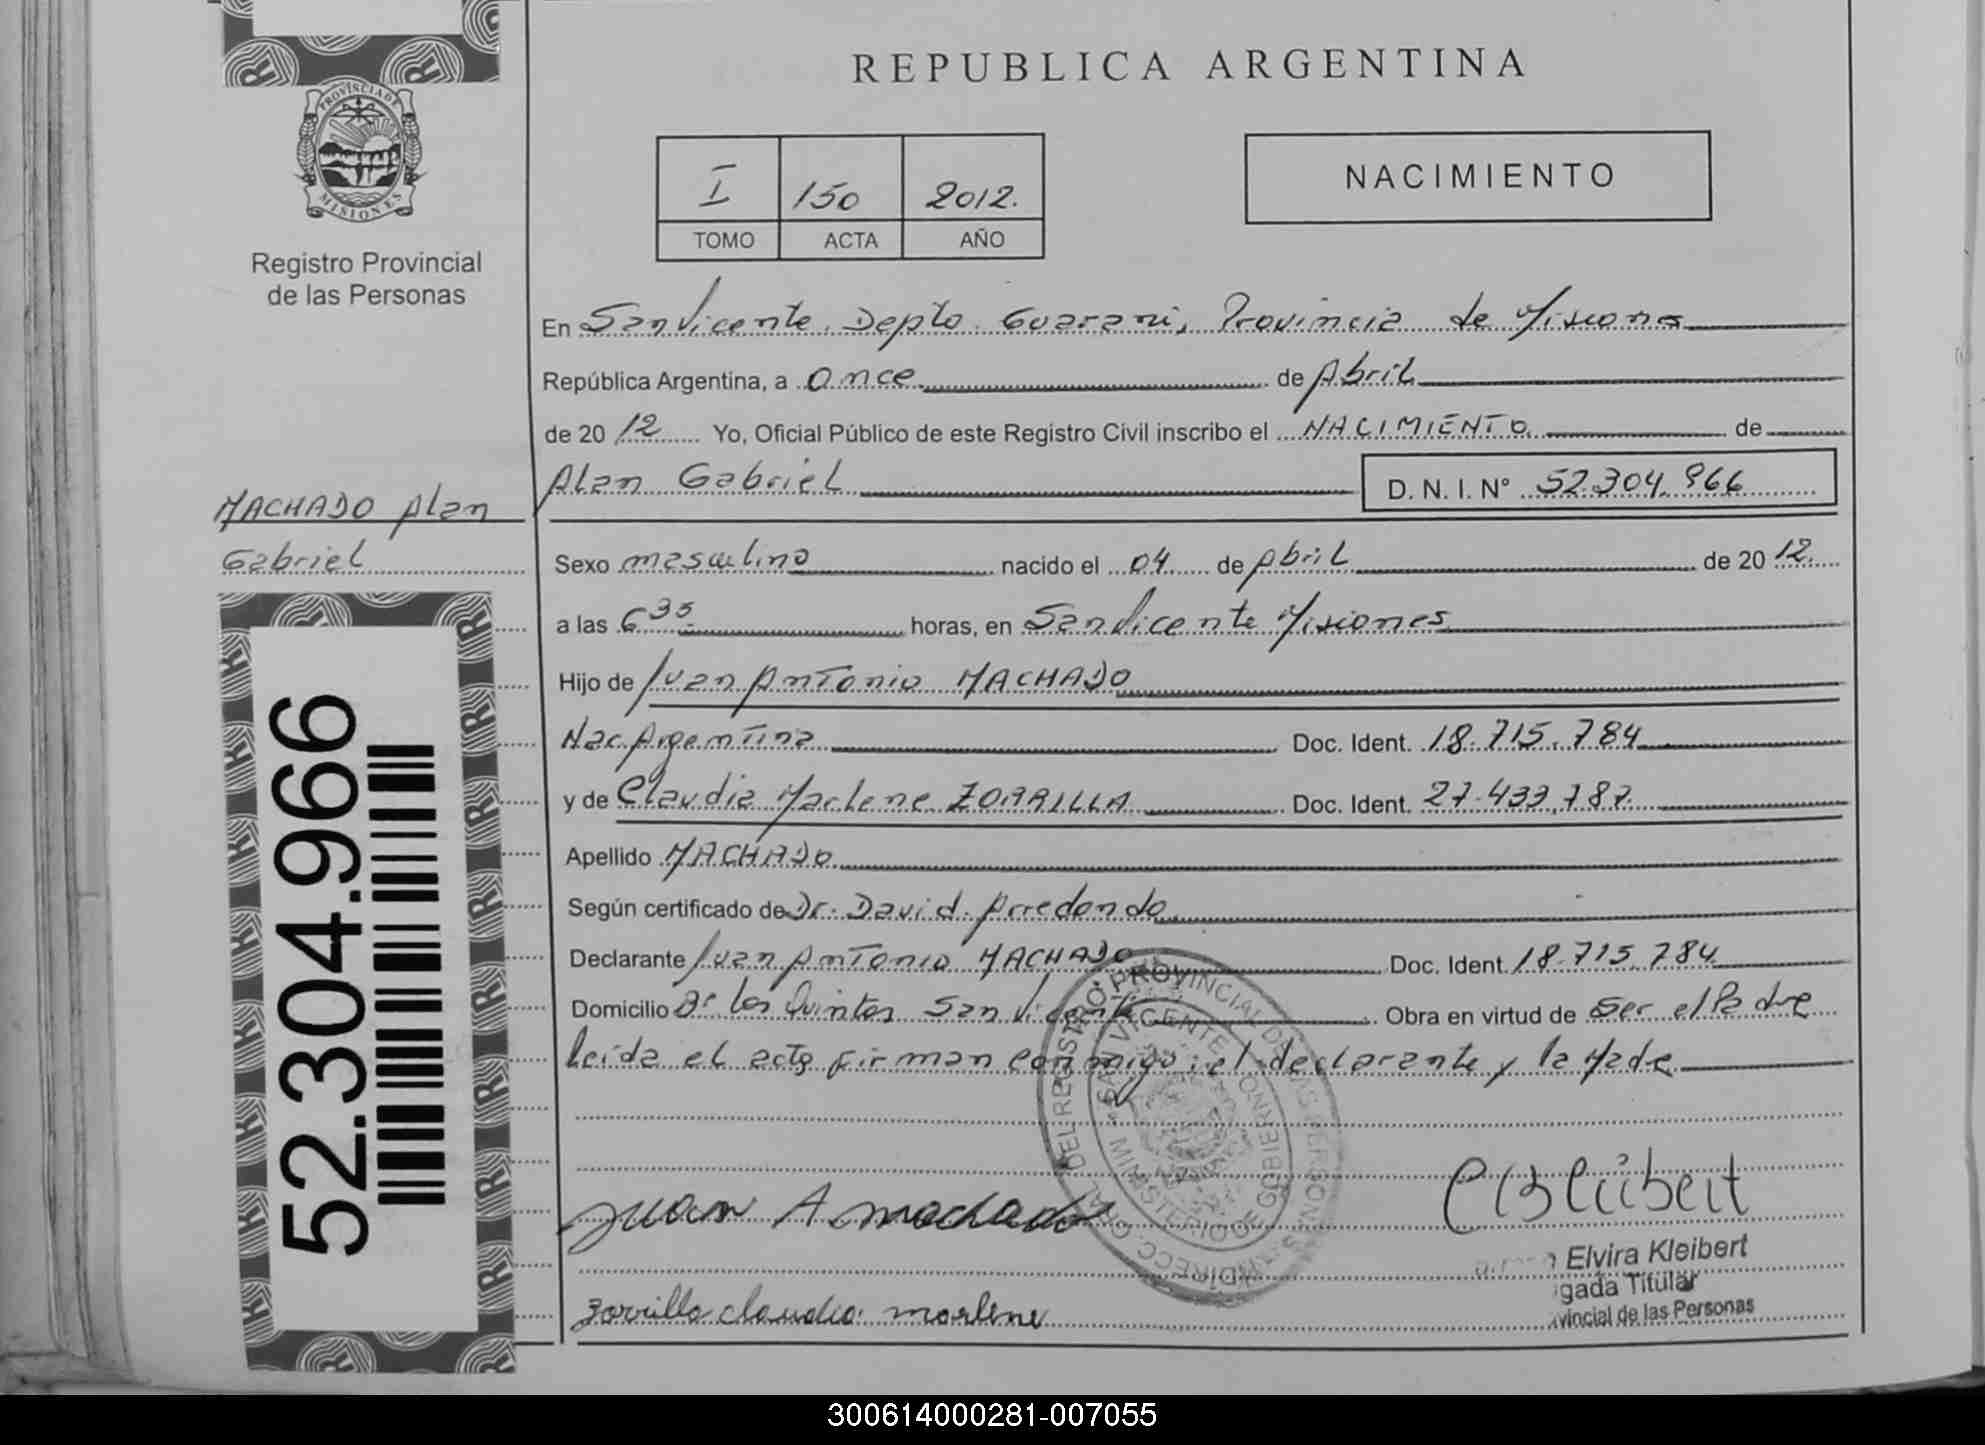 REPUBLICA ARGENTINA
PROVINCIA DE
MISIONES
Registro Provincial
de las Personas
I 150 2012.
TOMO ACTA AÑO
NACIMIENTO
En San Vicente, Depto Guarani, Provincia de Misiones
República Argentina, a once de Abril
de 2012 Yo, Oficial Público de este Registro Civil inscribo el NACIMIENTO de
Alan Gabriel D. N. I. N° 52.304.966
MACHADO Alan
Gabriel
Sexo masculino nacido el 04 de Abril de 2012.
a las 6 35 horas, en San Vicente Misiones
Hijo de Juan Antonio MACHADO
Nac. Argentina Doc. Ident. 18.715.784
y de Claudia Marlene ZORRILLA Doc. Ident. 27.433.787.
Apellido MACHADO
Según certificado de Dr. David Arredondo
Declarante Juan Antonio MACHADO Doc. Ident. 18.715.784
Domicilio B° Los Quintos San Vicente Obra en virtud de Ser el Padre
Leída el acta firman conmigo: el declarante y la Madre
52.304.966
DIRECC. GRAL. DEL REGISTRO PROVINCIAL DE LAS PERSONAS
MINISTERIO DE GOBIERNO
SAN VICENTE
Juan A machado
Elvira Kleibert
gada Titular
vincial de las Personas
Zorrilla claudia marlene
300614000281-007055